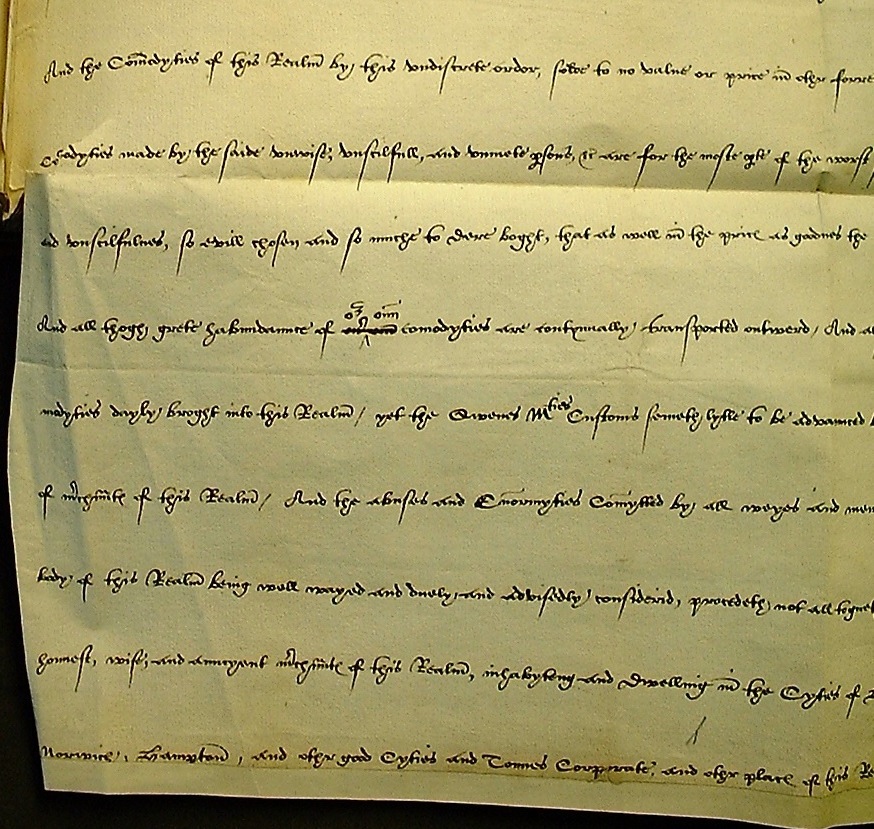 And the Com̄odyties of this Realm̄ by this vndiscrete order, solde to no value or price in̄ othr forre
odyties made by the saide vnwise, vnscilfull, and vnmete ꝑsons, are for the moste ꝑte of the worst
vnscilfulnes, so evill chosen and so muche to dere boght, that as well in̄ the price as goodnes the
And all thogh grete habundaunce of comodyties are contynually transported outward / And a
modyties dayly broght into this Realm̄ / yet the Quenes Mties Customs semeth lytle to be advaunced
of of this Realm̄ / And the abuses and Enormyties Com̄ytted by all weyes and men
body of this Realm̄ being well wayed and duely and advisedly considerid, procedeth not all toguet
honnest, wise, and auncyent of this Realm̄, inhabyteng and dwelling in̄ the Cyties of
Norwich, Hampton̄, and othr good Cyties and Tounes Corporate, and othr place of this Re